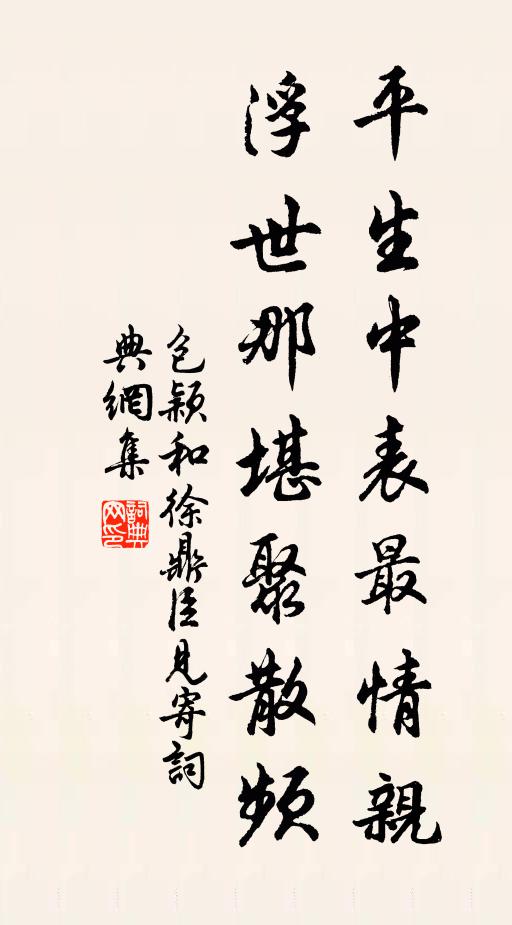 平生中表最情親
浮世那堪聚散頻
包穎和徐鼎臣見寄詞
典網集
詞典網印